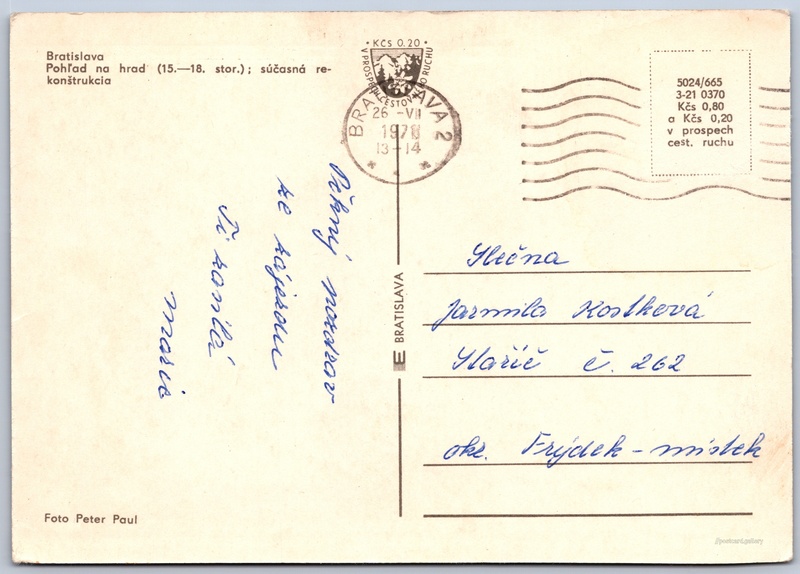 Bratislava
Pohľad na hrad (15.—18. stor.); súčasná re-
konštrukcia
• KČS 0.20 •
V PROSPECH CESTOVNÉHO RUCHU
BRATISLAVA 2
26 -VII
1978
13-14
5024/665
3-21 0370
Kčs 0,80
a Kčs 0,20
v prospech
cest. ruchu
Pěkný pozdrav
ze zájezdu
Ti zasílá
Marie
E BRATISLAVA
Slečna
Jarmila Kostková
Staříč č. 262
okr. Frýdek - místek
Foto Peter Paul